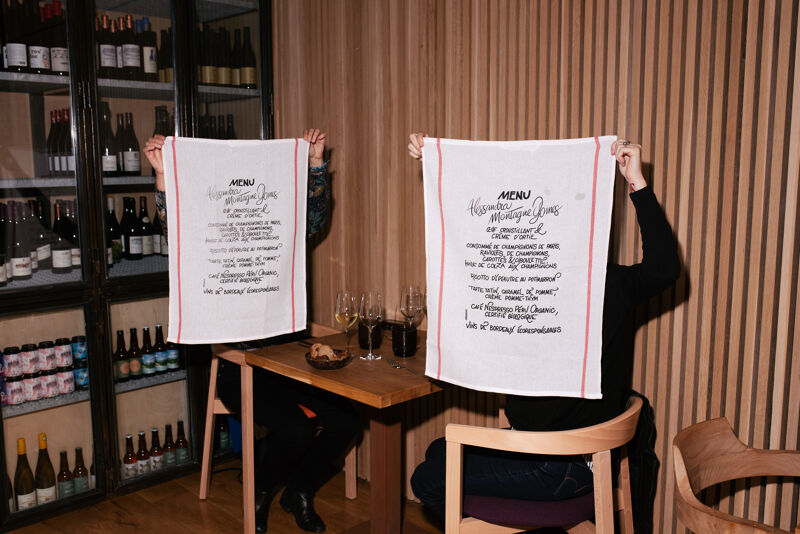 MENU
Alessandra
Montagne Gomes
ŒUF CROUSTILLANT &
CRÈME D'ORTIE
CONSOMMÉ DE CHAMPIGNONS DE PARIS,
RAVIOLES DE CHAMPIGNONS,
CAROTTES & CIBOULETTE
HUILE DE COLZA AUX CHAMPIGNONS
RISOTTO D'ÉPEAUTRE AU POTIMARRON
"TARTE TATIN, CARAMEL DE POMME",
CRÈME POMME-THYM
CAFÉ NESPRESSO PÉROU ORGANIC,
CERTIFIÉ BIOLOGIQUE
VINS DE BORDEAUX ÉCORESPONSABLES
MENU
Alessandra
Montagne Gomes
ŒUF CROUSTILLANT &
CRÈME D'ORTIE
CONSOMMÉ DE CHAMPIGNONS DE PARIS,
RAVIOLES DE CHAMPIGNONS,
CAROTTES & CIBOULETTE
HUILE DE COLZA AUX CHAMPIGNONS
RISOTTO D'ÉPEAUTRE AU POTIMARRON
"TARTE TATIN, CARAMEL DE POMME",
CRÈME POMME-THYM
CAFÉ NESPRESSO PÉROU ORGANIC,
CERTIFIÉ BIOLOGIQUE
VINS DE BORDEAUX ÉCORESPONSABLES